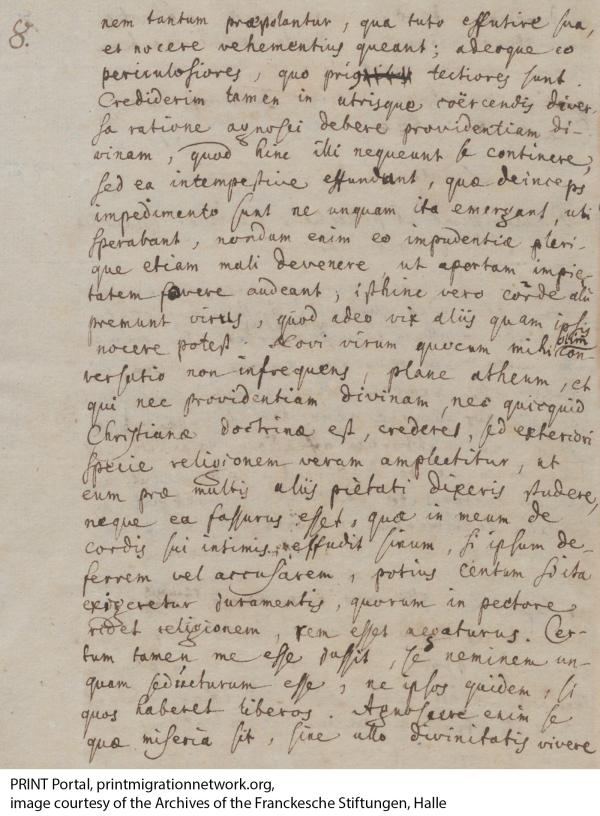 8.
nem tantum præpolantur, qua tuto effutire sua,
et nocere vehementius queant; adeoque eo
periculosiores, quo tectiores sunt.
Crediderim tamen in utrisque coërcendis diver-
sa ratione agnosci debere providentiam di-
vinam, quod hinc illi nequeunt se continere,
sed ea intempestive effundant, quæ deinceps
impedimento sunt ne unquam ita emergant, uti
sperabant, nondum enim eo impudentiæ pleri-
que etiam mali devenere, ut apertam impie-
tatem fovere audeant; isthinc vero corde alii
premunt virus, quod adeo vix aliis quam ipsis
nocere potest. Novi virum quocum mihi olim con-
versatio non infrequens, plane atheum, et
qui nec providentiam divinam, nec quicquid
Christianæ doctrinæ est, crederet, sed exteriori
specie religionem veram amplectitur, ut
eum præ multis aliis pietati dixeris studere,
neque ea fassurus esset, quæ in meum de
cordis sui intimis effudit sinum, si ipsum de-
ferrem vel accusarem, potius centum si ita
exigeretur juramentis, quorum in pectore
ridet religionem, rem esset negaturus. Cer-
tum tamen me esse jussit, se neminem un-
quam seducturum esse, ne ipsos quidem, si
quos haberet liberos. Agnoscere enim se
quæ miseria sit, sine ullo divinitatis vivere
PRINT Portal, printmigrationnetwork.org,
image courtesy of the Archives of the Franckesche Stiftungen, Halle